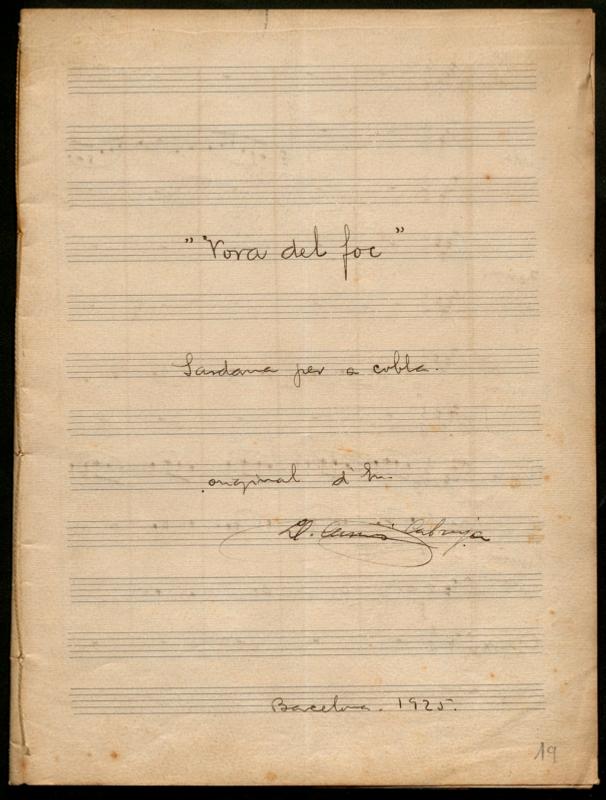 "Vora del foc"
Sardana per a cobla.
original d'En.
Cabruja
Barcelona. 1925.
19